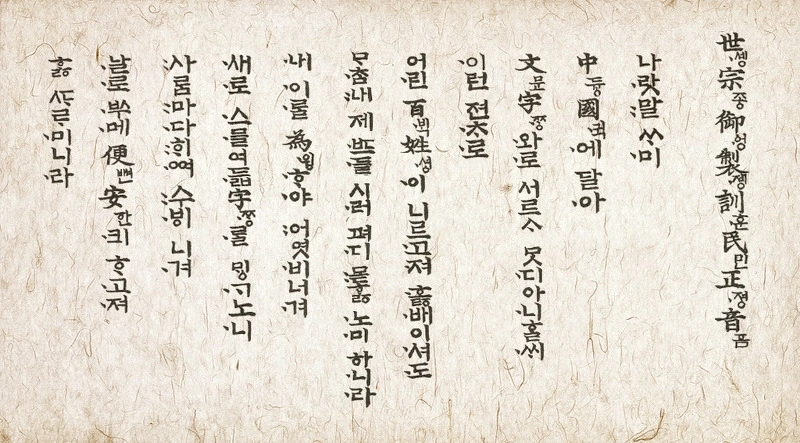 世솅宗종御엉製졩訓훈民민正졍音ᅙᅳᆷ
나랏〮말〯ᄊᆞ미
中듀ᇰ國귁〮에 달아
文문字ᄍᆞᆼ〮와〮로 서르 ᄉᆞᄆᆞᆺ디〮아니〮ᄒᆞᆯᄊᆡ〮
이〮런 젼ᄎᆞ〮로
어린〮 百ᄇᆡᆨ〮姓셔ᇰ〮이 니르고〮져 호ᇙ〮배이셔〮도
ᄆᆞᄎᆞᆷ〮내〯 제 ᄠᅳ〮들 시러 펴디〮 몯〯ᄒᆞᇙ 노미 하니〮라
내〮 이〮ᄅᆞᆯ 為윙〮ᄒᆞ〮야 어〯엿비너겨
새〮로 스〮믈여듧〮字ᄍᆞᆼ〮ᄅᆞᆯ ᄆᆡᇰᄀᆞ〮노니
사〯ᄅᆞᆷ마다〮ᄒᆡ〯ᅇᅧ 수〯ᄫᅵ〮 니겨
날〮로 ᄡᅮ〮메 便뼌安ᅙᅡᆫ킈〮 ᄒᆞ〮고져
ᄒᆞᇙ ᄯᆞᄅᆞ〮미니라